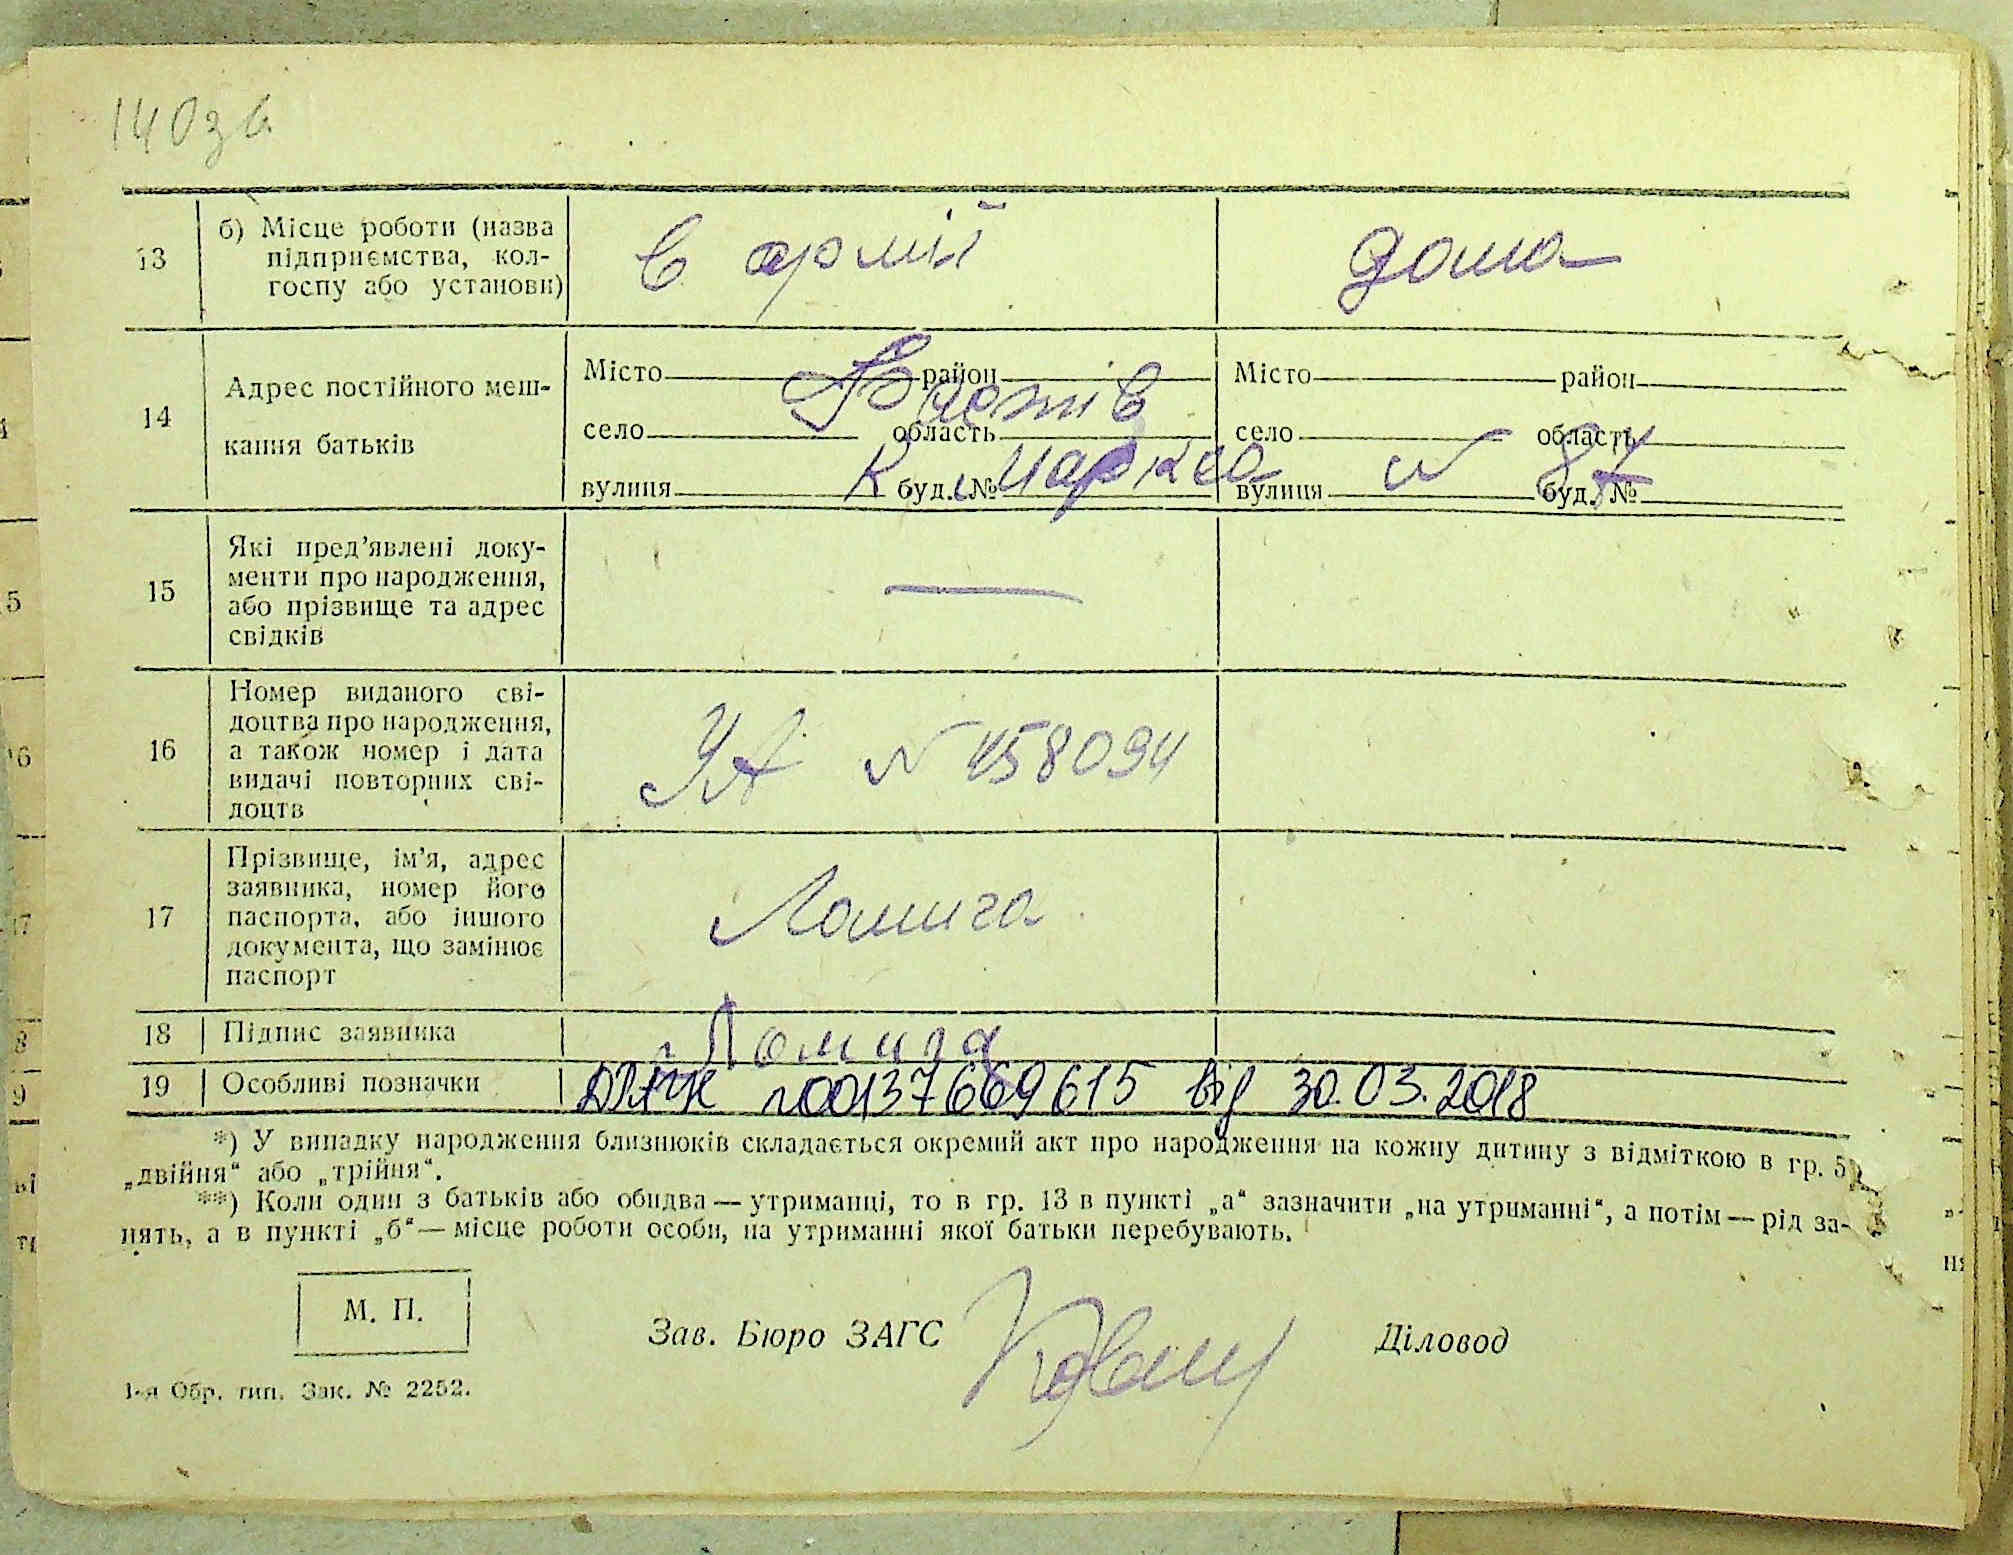 140зв
13
б) Місце роботи (назва
підприємства, кол-
госпу або установи)
в армії
дома
14
Адрес постійного меш-
кання батьків
Місто район
село область
вулиця буд. №
Фастів
К. Маркса № 87
Місто район
село область
вулиця буд. №
15
Які пред’явлені доку-
менти про народження,
або прізвище та адрес
свідків
—
16
Номер виданого сві-
доцтва про народження,
а також номер і дата
видачі повторних сві-
доцтв
УА № 458094
17
Прізвище, ім’я, адрес
заявника, номер його
паспорта, або іншого
документа, що замінює
паспорт
Ломига
18 Підпис заявника
Ломига
19 Особливі позначки
00137669615 від 30.03.2018
*) У випадку народження близнюків складається окремий акт про народження на кожну дитину з відміткою в гр. 5
„двійня“ або „трійня“.
**) Коли один з батьків або обидва — утриманці, то в гр. 13 в пункті „а“ зазначити „на утриманні“, а потім — рід за-
нять, а в пункті „б“ — місце роботи особи, на утриманні якої батьки перебувають.
М. П.
Зав. Бюро ЗАГС
Діловод
1-я Обр. тип. Зак. № 2252.